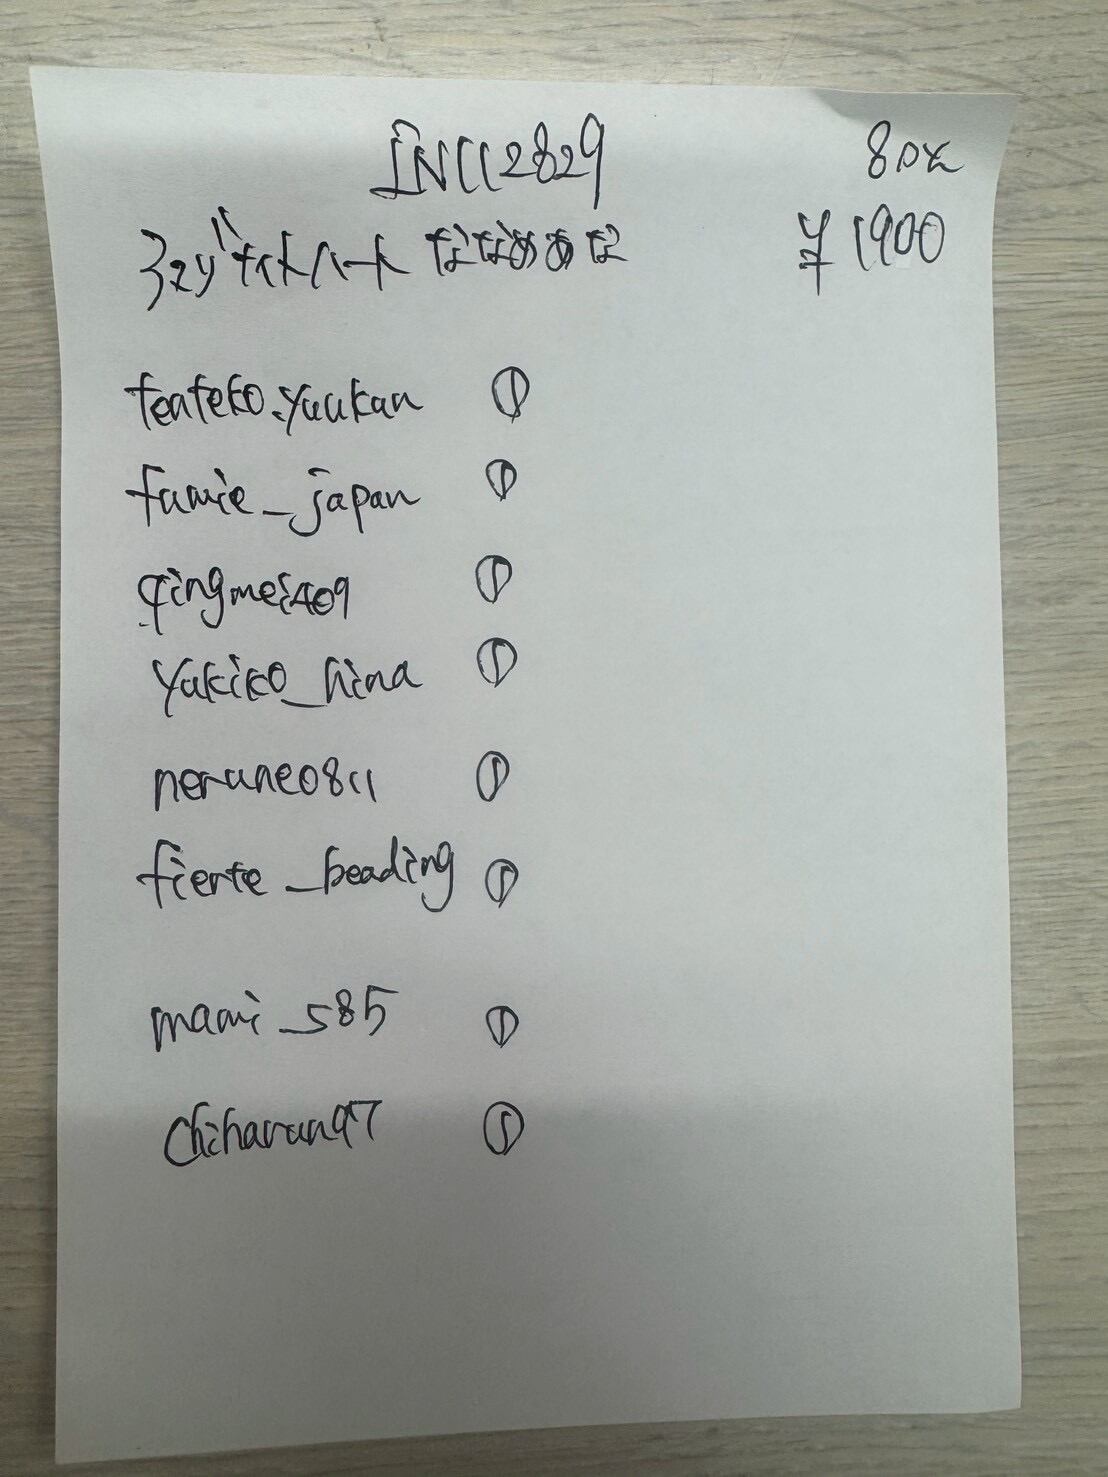 INC112829 80次
ラズリナイトハート ななめあな ¥1900
tenteko.yuukan ①
fumie_japan ①
qingmei409 ①
yukiko_hina ①
nerune0811 ①
fierte_beading ①
mami_s85 ①
chiharun97 ①